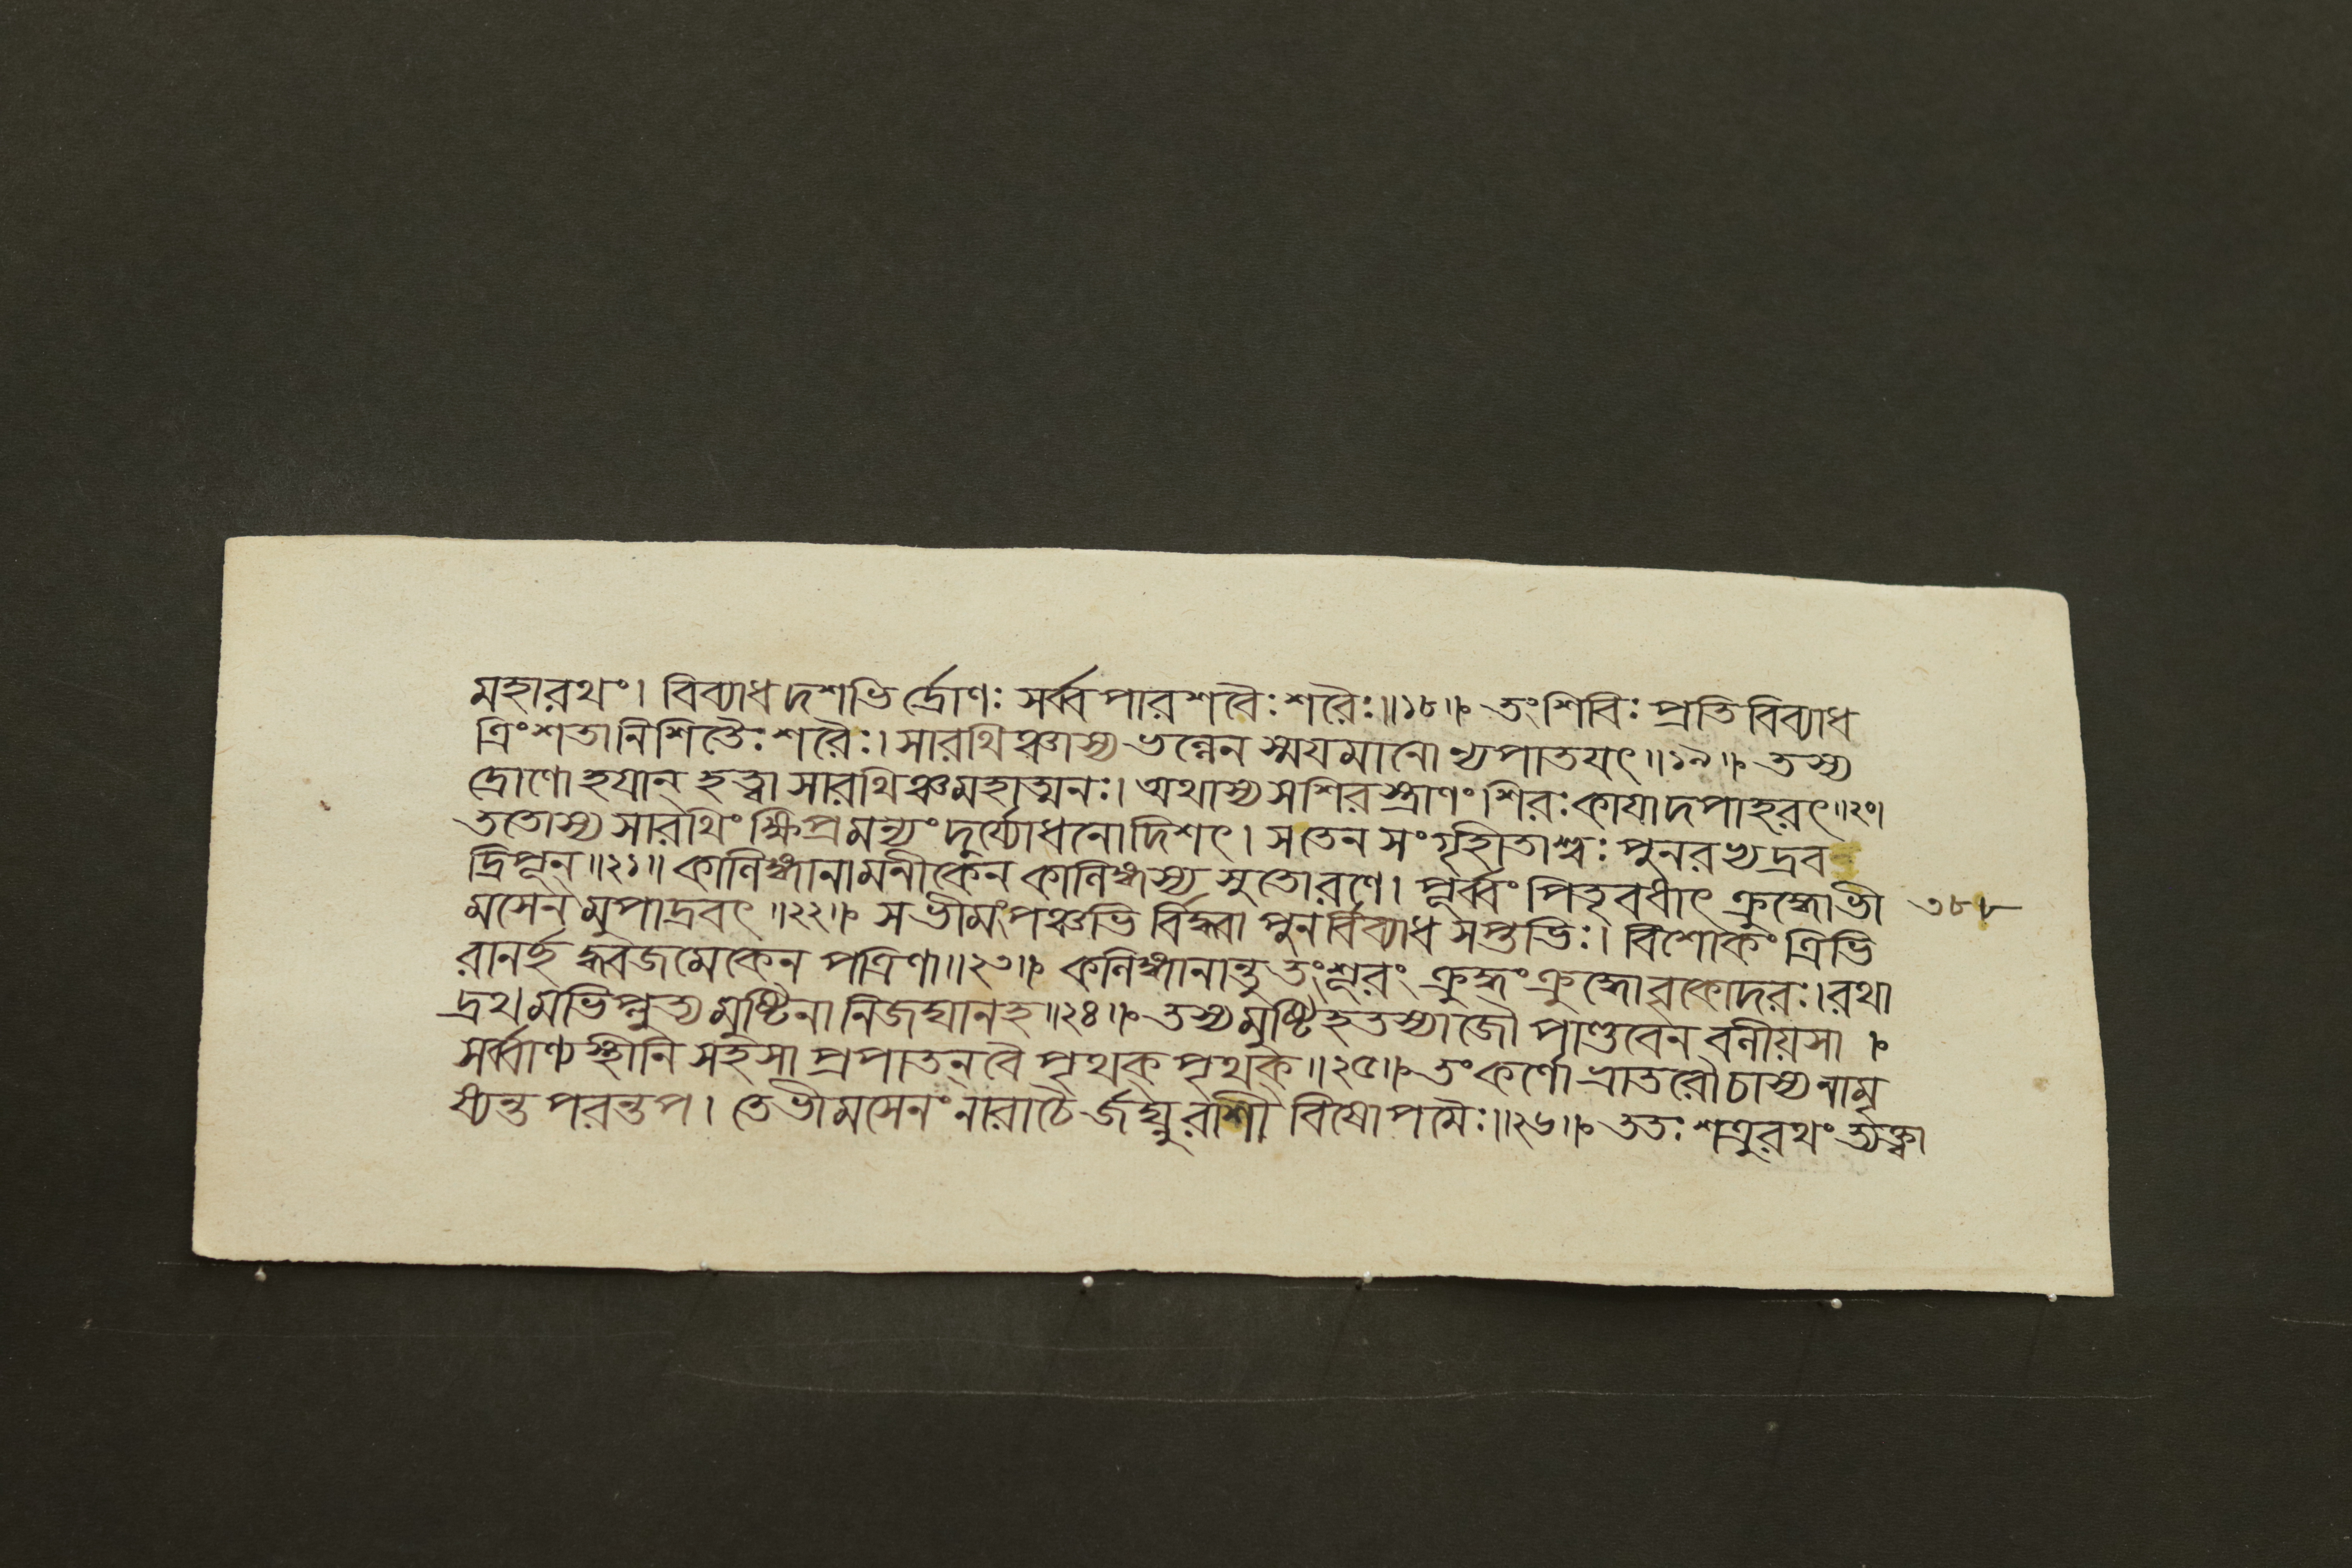 মহারথং। বিব্যাধ দশভি র্দ্রোণঃ সর্ব্ব পারশবৈঃ শরৈঃ॥১৮॥ তং শিবিঃ প্রতি বিব্যাধ
ত্রিংশতা নিশিতৈঃ শরৈঃ। সারথিঞ্চাস্য ভল্লেন স্ময়মানো ন্যপাতযৎ॥১৯॥ তস্য
দ্রোণো হযান্ হত্বা সারথিঞ্চ মহাত্মনঃ। অথাস্য সশিরস্ত্রাণং শিরঃ কাযাদপাহরৎ॥২০॥
ততোস্য সারথিং ক্ষিপ্রমন্যং দুর্য্যোধনোদিশৎ। স তেন সংগৃহীতাশ্বঃ পুনরভ্যদ্রব
দ্রিপূন্॥২১॥ কালিঙ্গানামনীকেন কালিঙ্গস্য সুতো রণে। পূর্ব্বং পিতৃবধাৎ ক্রুদ্ধো ভী ৩৮৮
মসেন মুপাদ্রবৎ॥২২॥ স ভীমং পঞ্চভি র্বিদ্ধ্বা পুনর্বিব্যাধ সপ্তভিঃ। বিশোকং ত্রিভি
রানর্হ দ্ধ্বজমেকেন পত্রিণা॥২৩॥ কলিঙ্গানান্তু তং শূরং ক্রুদ্ধং ক্রুদ্ধো বৃকোদরঃ। রথা
দ্রথমভিপ্লুত্য মুষ্টিনা নিজঘান হ॥২৪॥ তস্য মুষ্টিহতস্যাজৌ পাণ্ডবেন বলীয়সা ।
সর্ব্বাণ্যস্থীনি সহসা প্রপাতন্ বৈ পৃথক্ পৃথক্॥২৫॥ তং কর্ণো ভ্রাতরৌ চাস্য নামৃ
ষ্যন্ত পরন্তপ। তে ভীমসেনং নারাচৈ র্জঘ্নুরাশী বিষোপমৈঃ॥২৬॥ ততঃ শত্রুরথং ত্যক্ত্বা